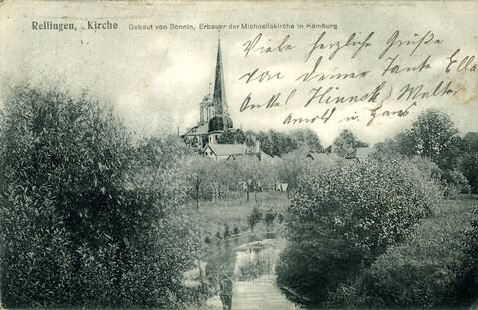 Rellingen, Kirche Gebaut von Sonnin, Erbauer der Michaeliskirche in Hamburg
Viele herzliche Grüße
von Deiner Tante Ella
Onkel Hinnerk, Walter
Arnold u. Hans